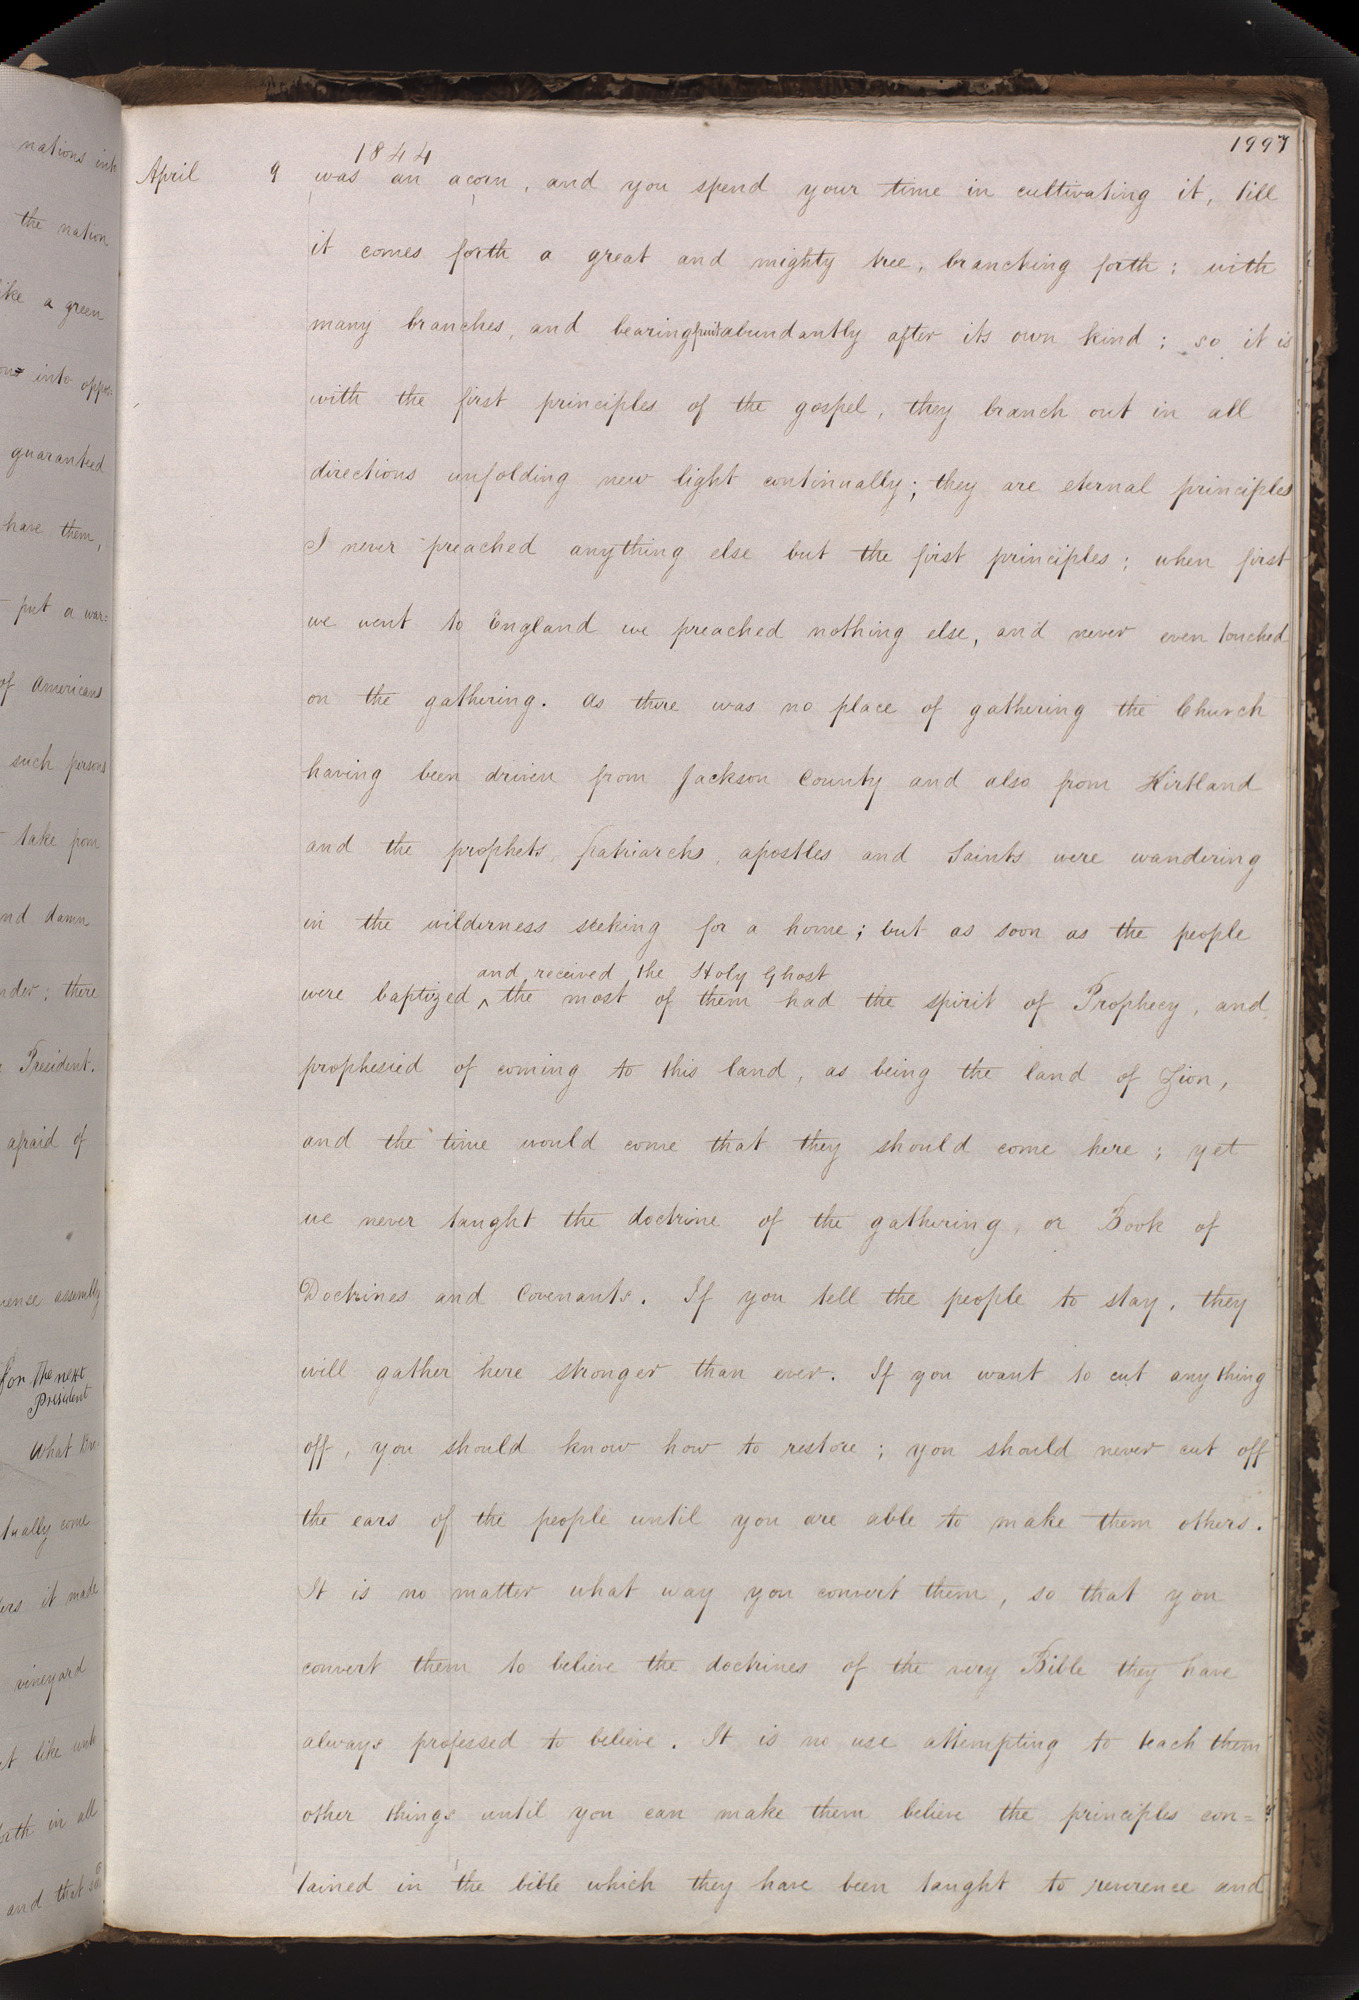 nations
the nation
a green
into oppo:
guaranteed
have them,
put a war:
of Americans
such persons
take from
damn
there
President.
afraid of
assembly
For the next
President
What
tually come
it made
vineyard
like unto
in all
and that
1997
1844
April 9 was an acorn, and you spend your time in cultivating it, till
it comes forth a great and mighty tree, branching forth; with
many branches, and bearing fruit abundantly after its own kind; so it is
with the first principles of the gospel, they branch out in all
directions unfolding new light continually; they are eternal principles
I never preached anything else but the first principles; when first
we went to England we preached nothing else, and never even touched
on the gathering. as there was no place of gathering the Church
having been driven from Jackson County and also from Kirtland
and the prophets, Patriarchs, apostles and Saints were wandering
in the wilderness seeking for a home; but as soon as the people
and received the Holy Ghost
were baptized ^ the most of them had the spirit of Prophecy, and
prophesied of coming to this land, as being the land of Zion,
and the time would come that they should come here; yet
we never taught the doctrine of the gathering, or Book of
Doctrines and Covenants. If you tell the people to stay, they
will gather here stronger than ever. If you want to cut any thing
off, you should know how to restore; you should never cut off
the ears of the people until you are able to make them others.
It is no matter what way you convert them, so that you
convert them to believe the doctrines of the very Bible they have
always professed to believe. It is no use attempting to teach them
other things until you can make them believe the principles con=
tained in the bible which they have been taught to reverence and